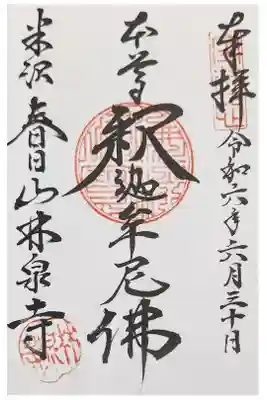 奉拝
令和六年六月三十日
本尊
釈迦牟尼佛
米沢
春日山林泉寺